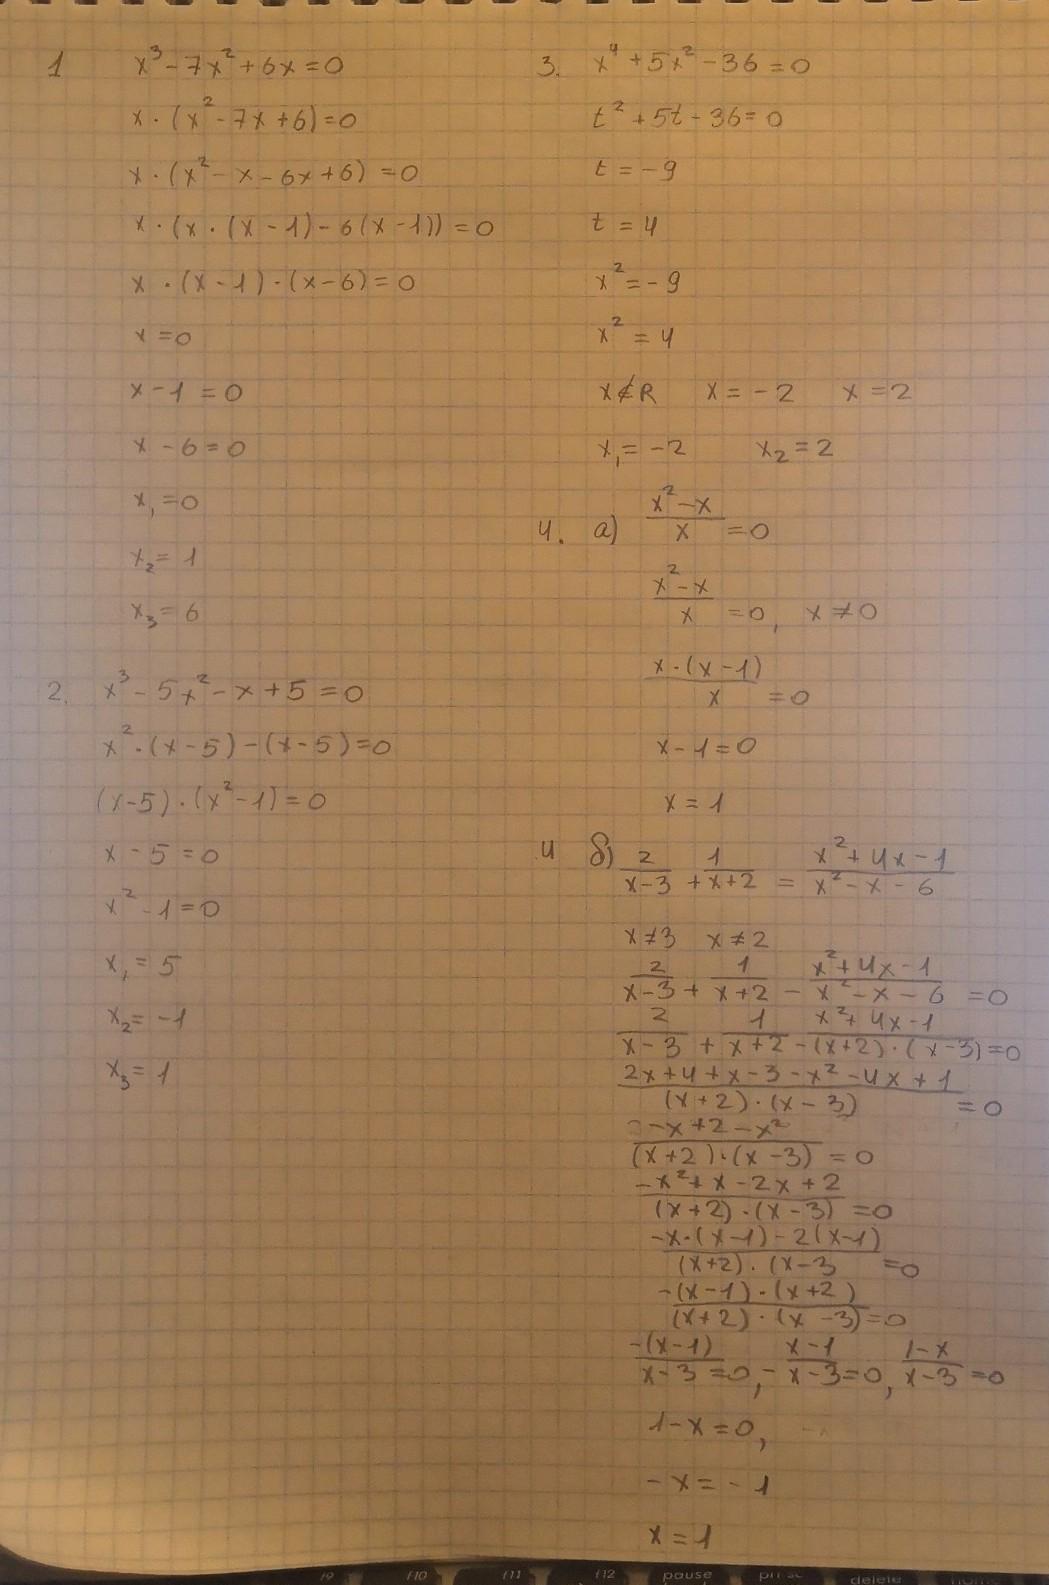 1 x³-7x²+6x=0
x·(x²-7x+6)=0
x·(x²-x-6x+6)=0
x·(x·(x-1)-6(x-1))=0
x·(x-1)·(x-6)=0
x=0
x-1=0
x-6=0
x₁=0
x₂=1
x₃=6
2. x³-5x²-x+5=0
x²·(x-5)-(x-5)=0
(x-5)·(x²-1)=0
x-5=0
x²-1=0
x₁=5
x₂=-1
x₃=1
3. x⁴+5x²-36=0
t²+5t-36=0
t=-9
t=4
x²=-9
x²=4
x∉R x=-2 x=2
x₁=-2 x₂=2
4. a) (x²-x)/x=0
(x²-x)/x=0, x≠0
x·(x-1)/x=0
x-1=0
x=1
4 б) 2/(x-3)+1/(x+2)=(x²+4x-1)/(x²-x-6)
x≠3 x≠2
2/(x-3)+1/(x+2)-(x²+4x-1)/(x²-x-6)=0
2/(x-3)+1/(x+2)-(x²+4x-1)/((x+2)·(x-3))=0
(2x+4+x-3-x²-4x+1)/((x+2)·(x-3))=0
(-x+2-x²)/((x+2)·(x-3))=0
(-x²+x-2x+2)/((x+2)·(x-3))=0
(-x·(x-1)-2(x-1))/((x+2)·(x-3)=0
-(x-1)·(x+2)/((x+2)·(x-3))=0
-(x-1)/(x-3)=0, -(x-1)/(x-3)=0, (1-x)/(x-3)=0
1-x=0,
-x=-1
x=1
f9 f10 f11 f12 pause prt sc delete home